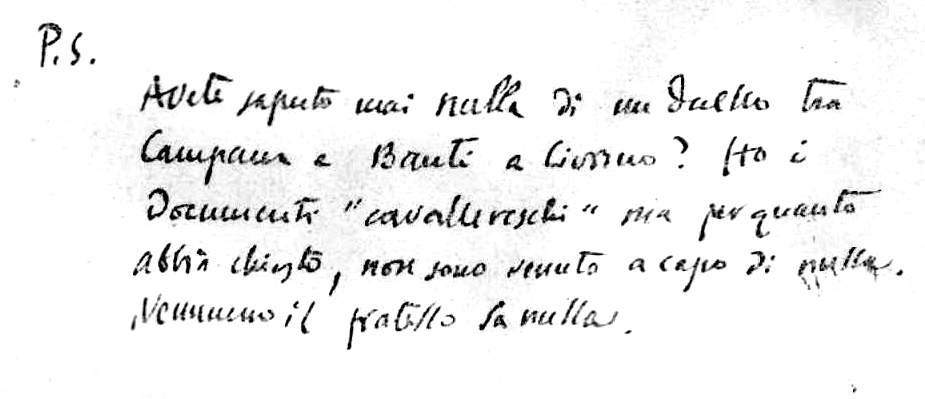 P.S.
Avete saputo mai nulla di un duello tra
Campana e Banti a Livorno? Ho i
Documenti "cavallereschi" ma per quanto
abbia chiesto, non sono venuto a capo di nulla.
Nemmeno il fratello sa nulla.